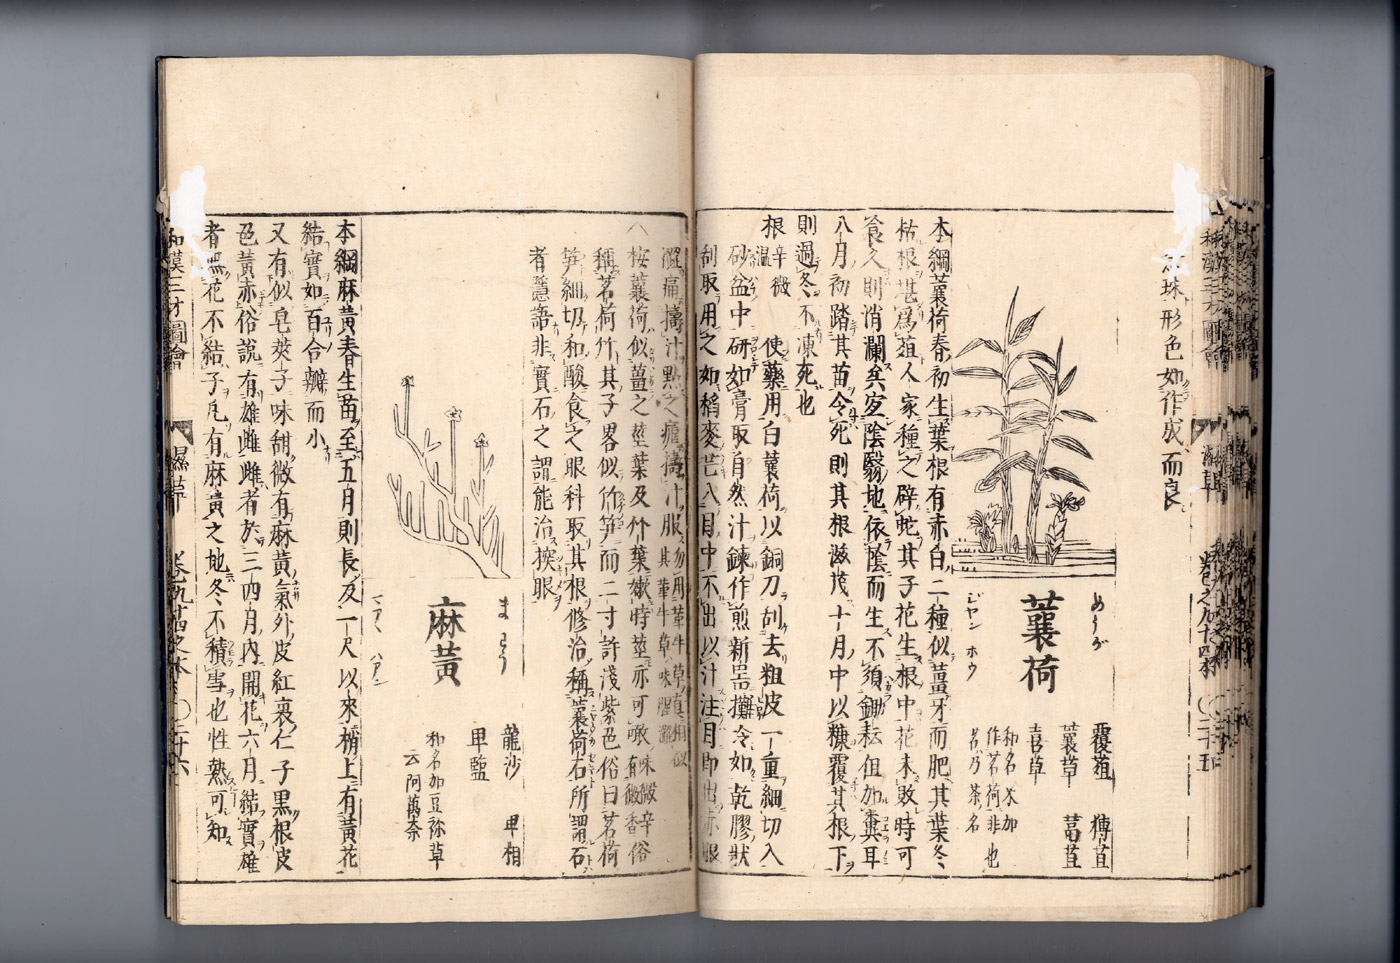 和漢三才圖會
濕草
卷之九十四末
〇三十五
珠形色如作成而良
めうが
蘘荷
ジヤン ホウ
覆葅 蓴苴
蘘草 葍苴
嘉草
和名米加
作茗荷非也
茗乃茶名
本綱蘘荷春初生葉根有赤白二種似薑牙而肥其葉冬
枯根堪爲葅人家種之辟蛇其子花生根中花未敗時可
食久則消瀾矣宜陰翳地依蔭而生不須鋤耘但加糞耳
八月初踏其苗令死則其根滋茂十月中以糠覆其根下
則過冬不凍死也
根 辛微温 使藥用白蘘荷以銅刀刮去粗皮一重細切入
砂盆中研如膏取自然汁鍊作煎新器攤冷如乾膠狀
刮取用之如稻麥芒入目中不出以汁注目即出赤眼
澀痛擣汁點之瘧擣汁服 勿用革牛草眞相似其革牛草味腥澀
按蘘荷似薑之莖葉及竹葉嫩時莖亦可噉 味微辛有微香 俗
稱茗荷竹其子畧似竹笋而二寸許淺紫色俗曰茗荷
笋細切和酸食之眼科取其根修治稱蘘荷石所謂石
者隱語非實石之謂能治撲眼
まわう
麻黃
マアハアン
龍沙 卑相
卑鹽
和名加豆祢草
云阿萬奈
本綱麻黃春生苗至五月則長及一尺以來梢上有黃花
結實如百合瓣而小
又有似皂莢子味甜微有麻黃氣外皮紅裏仁子黑根皮
色黃赤俗說有雄雌雌者於三四月內開花六月結實雄
者無花不結子凡有麻黃之地冬不積雪也性熱可知
和漢三才圖會
濕草
卷之九十四之末
〇三十六